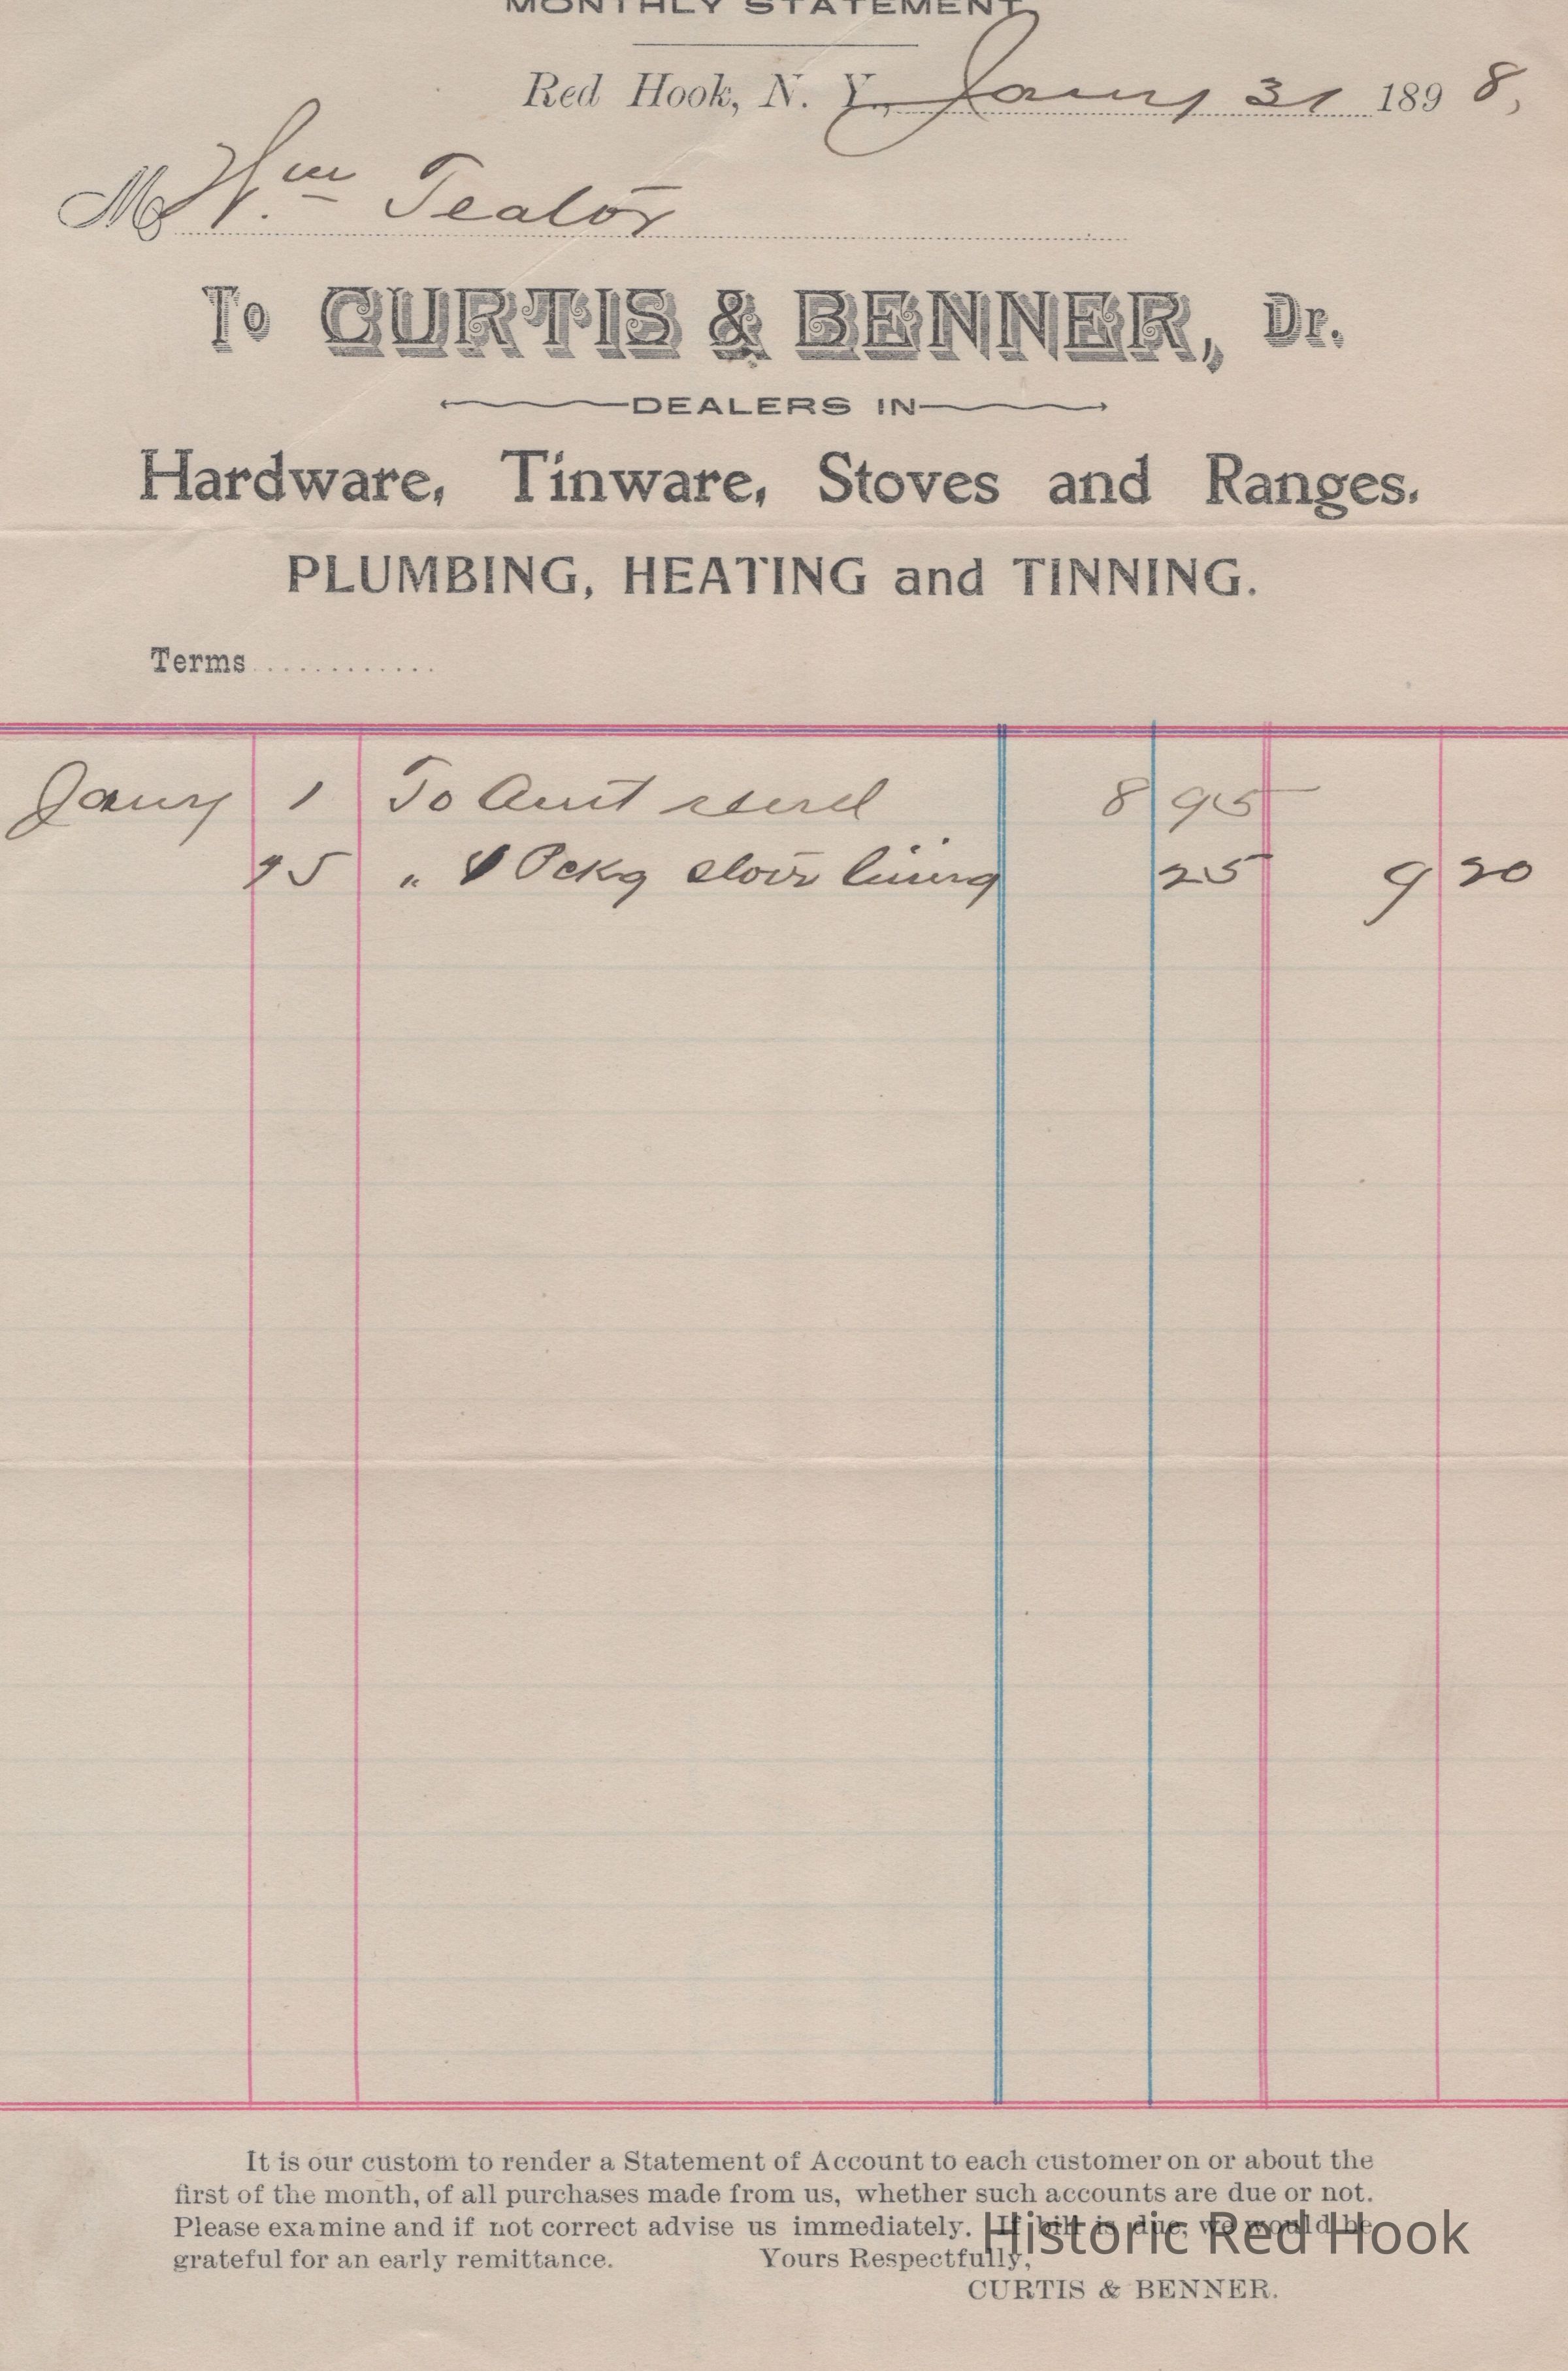 MONTHLY STATEMENT
Red Hook, N. Y., Jany 31 1898,
M Wm Teator
To CURTIS & BENNER, Dr.
DEALERS IN
Hardware, Tinware, Stoves and Ranges.
PLUMBING, HEATING and TINNING.
Terms............
Jany 1 To Amt rend 8 95
" Pckg stove lining 25 9 20
It is our custom to render a Statement of Account to each customer on or about the
first of the month, of all purchases made from us, whether such accounts are due or not.
Please examine and if not correct advise us immediately. If bill is due, we would be
grateful for an early remittance. Yours Respectfully,
CURTIS & BENNER.
Historic Red Hook